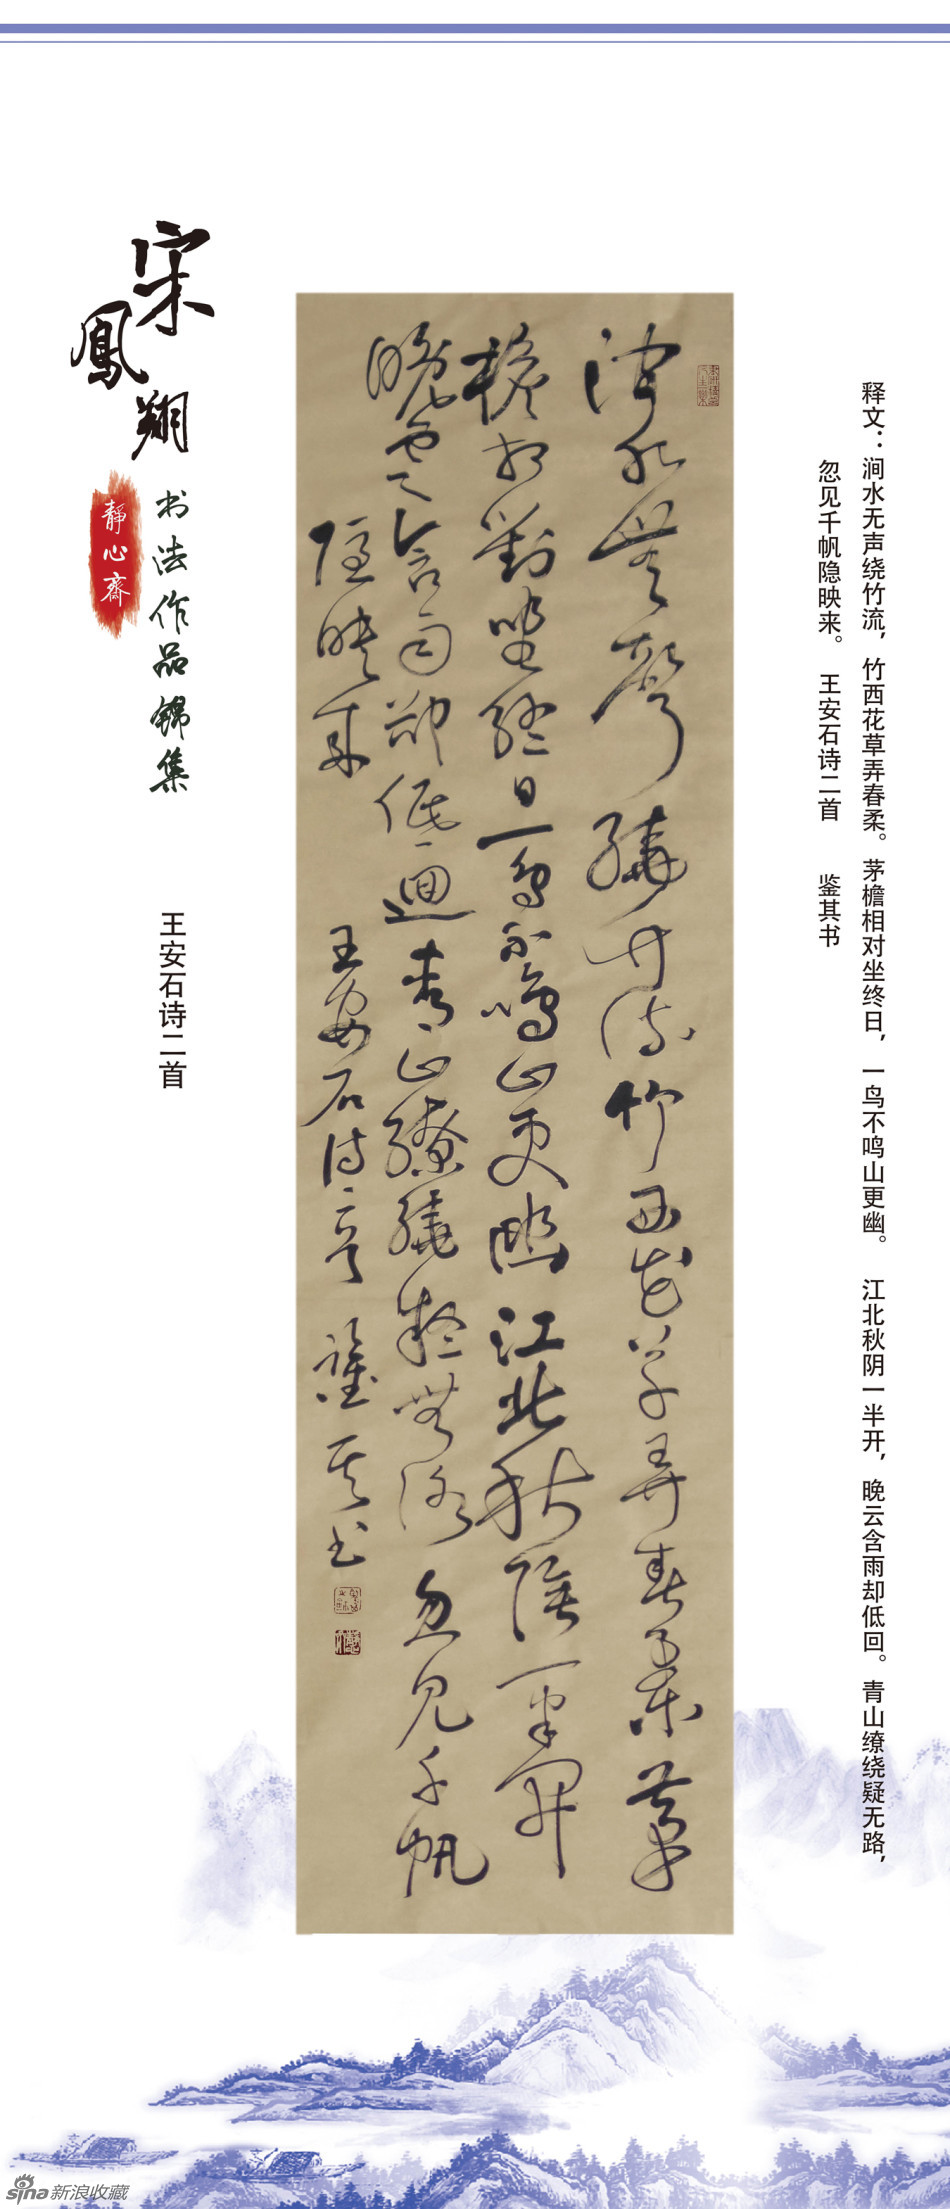 释文：涧水无声绕竹流，竹西花草弄春柔。茅檐相对坐终日，一鸟不鸣山更幽。 江北秋阴一半开，晚云含雨却低回。青山缭绕疑无路，
忽见千帆隐映来。 王安石诗二首 鉴其书
涧水無聲繞竹流竹西花草弄春柔茅
檐相對坐終日一鳥不鳴山更幽江北秋陰一半開
晚雲含雨却低迴青山繚繞疑無路忽見千帆
隱映來 王安石诗二首 鑑其书
宋鳳翔
书法作品锦集
靜心齋
王安石诗二首
sina新浪收藏